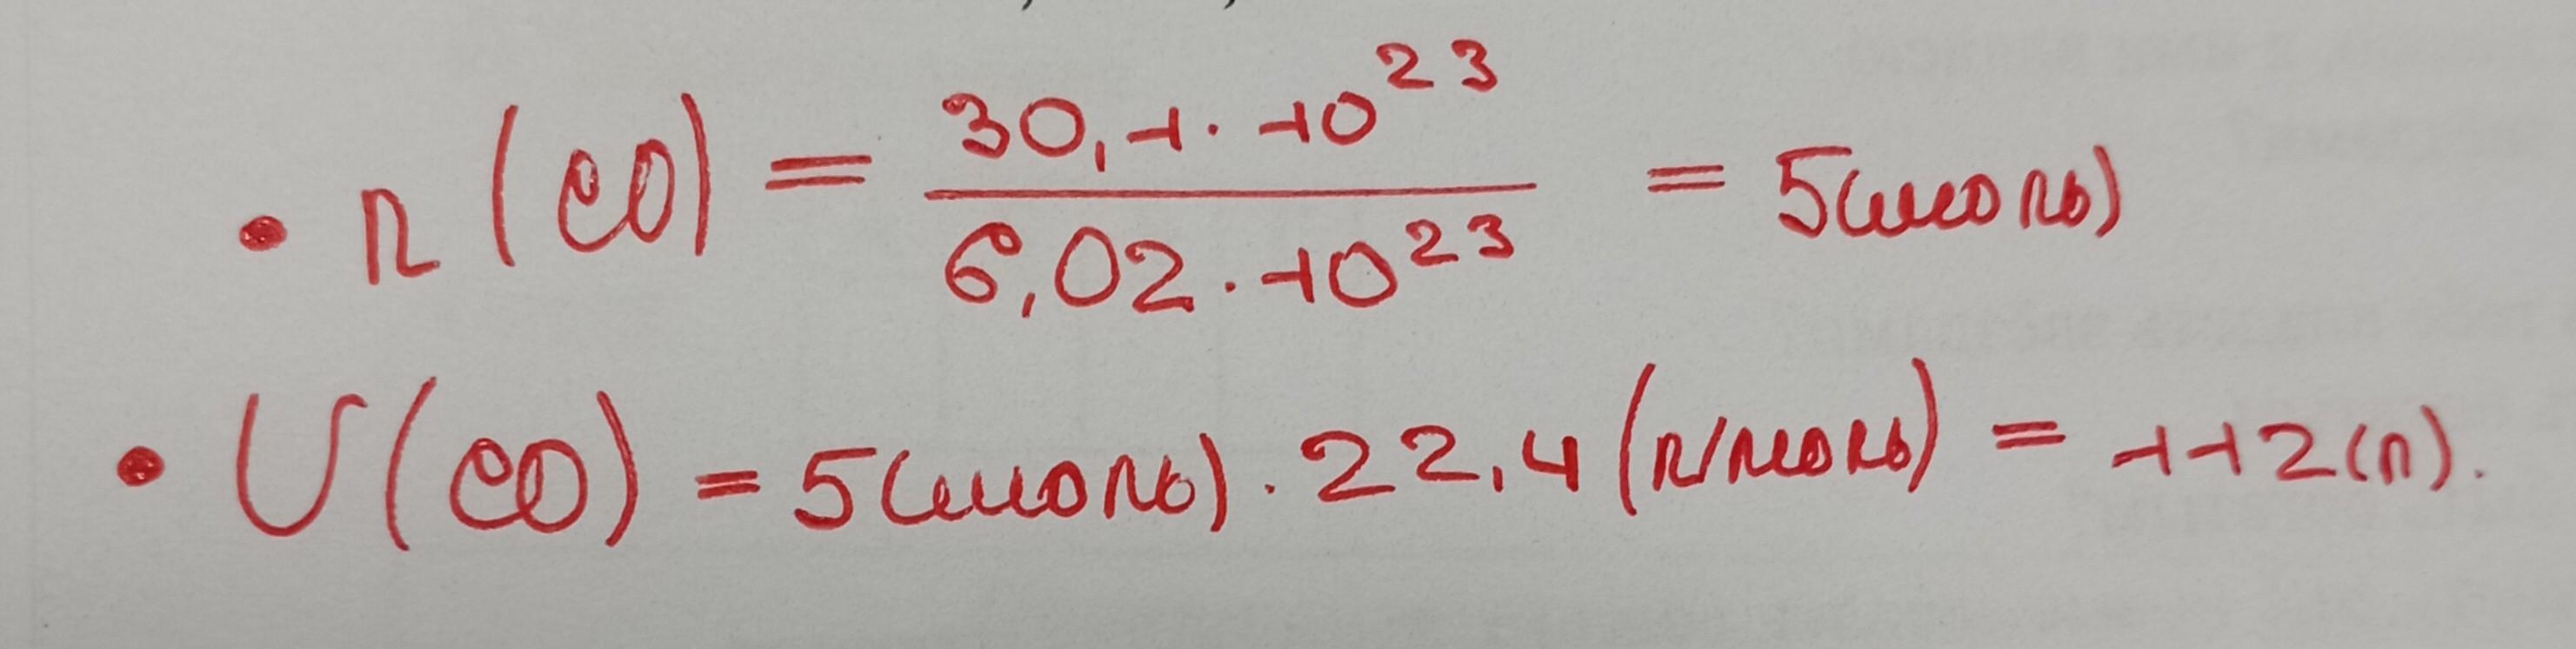 • n (CO) = 30,1 · 10²³ / 6,02 · 10²³ = 5(моль)
• V(CO) = 5(моль) · 22,4 (л/моль) = 112(л).